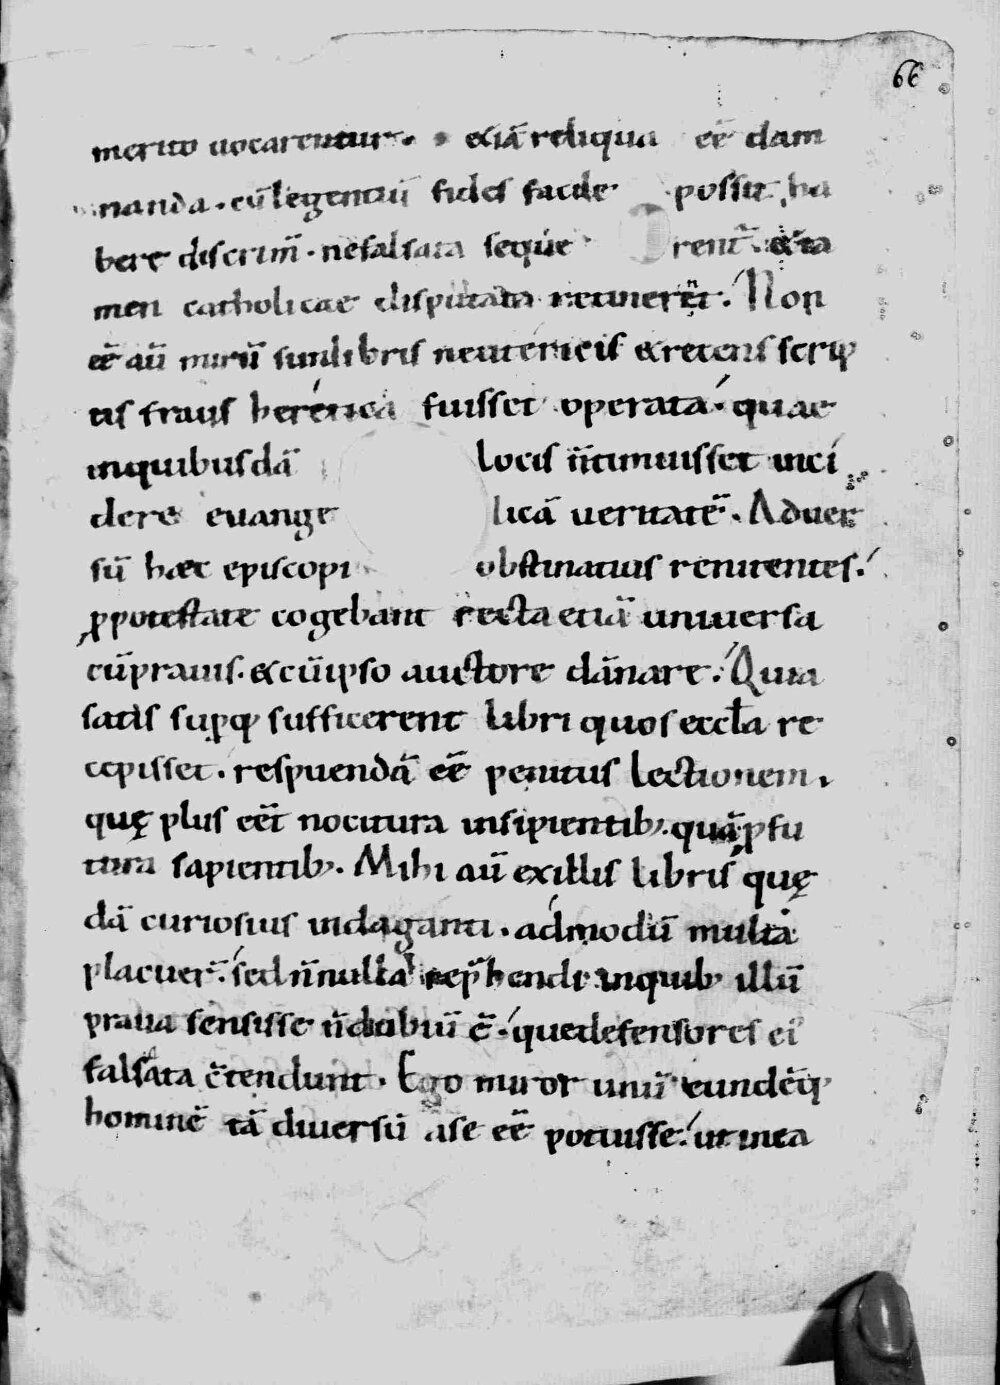 66
merito uocarentur. etiā reliqua eē dam
nanda. cū legentiū fides facile possit ha
bere discrim̄. ne falsata seque rent̄. & ta
men catholicae disputata retinerēt. Non
eē aū mirū si in libris neutericis & recens scrip
tis fraus heretica fuisset operata. quae
in quibusdā locis n̄ timuisset inci
dere euange licā ueritatē. Aduer
sū haec episcopi obstinatius renitentes.
ꝓ potestate cogebant recta etiā uniuersa
cū prauis. & cū ipso auctore dānare. Quia
satis suꝑq; sufficerent libri quos eccła re
cepisset. respuendā eē penitus lectionem.
quę plus eēt nocitura insipientib;. quā ꝓfu
tura sapientib;. Mihi aū ex illis libris quę
dā curiosius indaganti. admodū multa
placuer̄. sed n̄nulla rep̄hendi in quib; illū
praua sensisse n̄ dubiū ē. que defensores ei
falsata c̄tendunt. Ego miror unū eundēq;
hominē tā diuersū a se eē potuisse. ut in ea